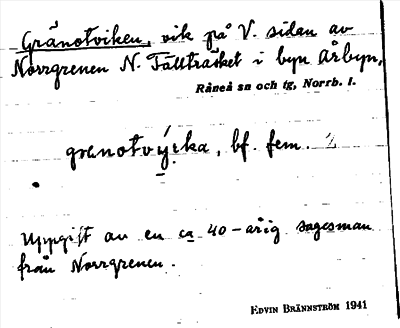 Gränotviken, vik på V. sidan av
Norrgrenen N. Fällträsket i byn Årbyn,
Råneå sn och tg, Norrb. l.
granotvýrka, bf. fem.
Uppgift av en ca 40-årig sagesman
från Norrgrenen.
EDVIN BRÄNNSTRÖM 1941